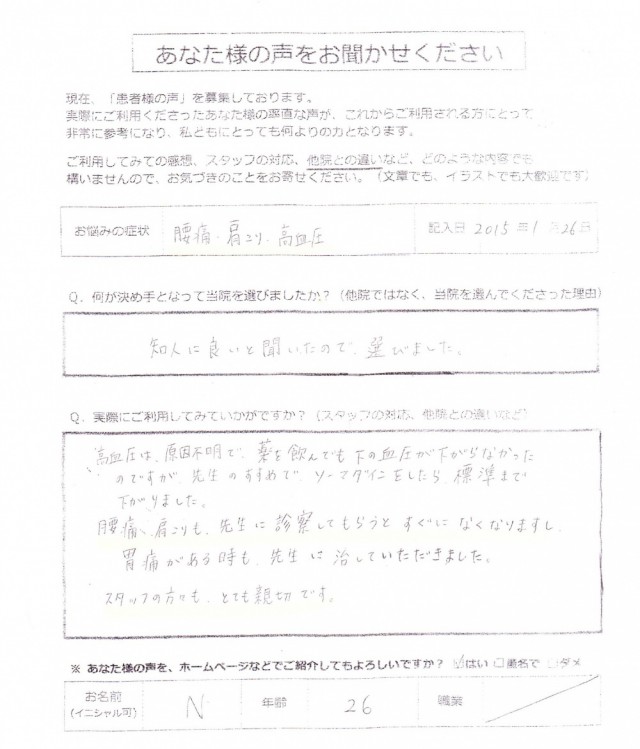 あなた様の声をお聞かせください
現在、「患者様の声」を募集しております。
実際にご利用くださったあなた様の率直な声が、これからご利用される方にとって
非常に参考になり、私どもにとっても何よりの力となります。
ご利用してみての感想、スタッフの対応、他院との違いなど、どのような内容でも
構いませんので、お気づきのことをお寄せください。(文章でも、イラストでも大歓迎です)
お悩みの症状 腰痛、肩こり、高血圧 記入日 2015 年 1 月 26 日
Q. 何が決め手となって当院を選びましたか?(他院ではなく、当院を選んでくださった理由)
知人に良いと聞いたので、選びました。
Q. 実際にご利用してみていかがですか?(スタッフの対応、他院との違いなど)
高血圧は、原因不明で、薬を飲んでも下の血圧が下がらなかった
のですが、先生のすすめで、ソーマダインをしたら標準まで
下がりました。
腰痛、肩こりも、先生に診察してもらうとすぐになくなりますし、
胃痛がある時も、先生に治していただきました。
スタッフの方々も、とても親切です。
※ あなた様の声を、ホームページなどでご紹介してもよろしいですか? ☑はい □匿名で □ダメ
お名前 N 年齢 26 職業
(イニシャル可)